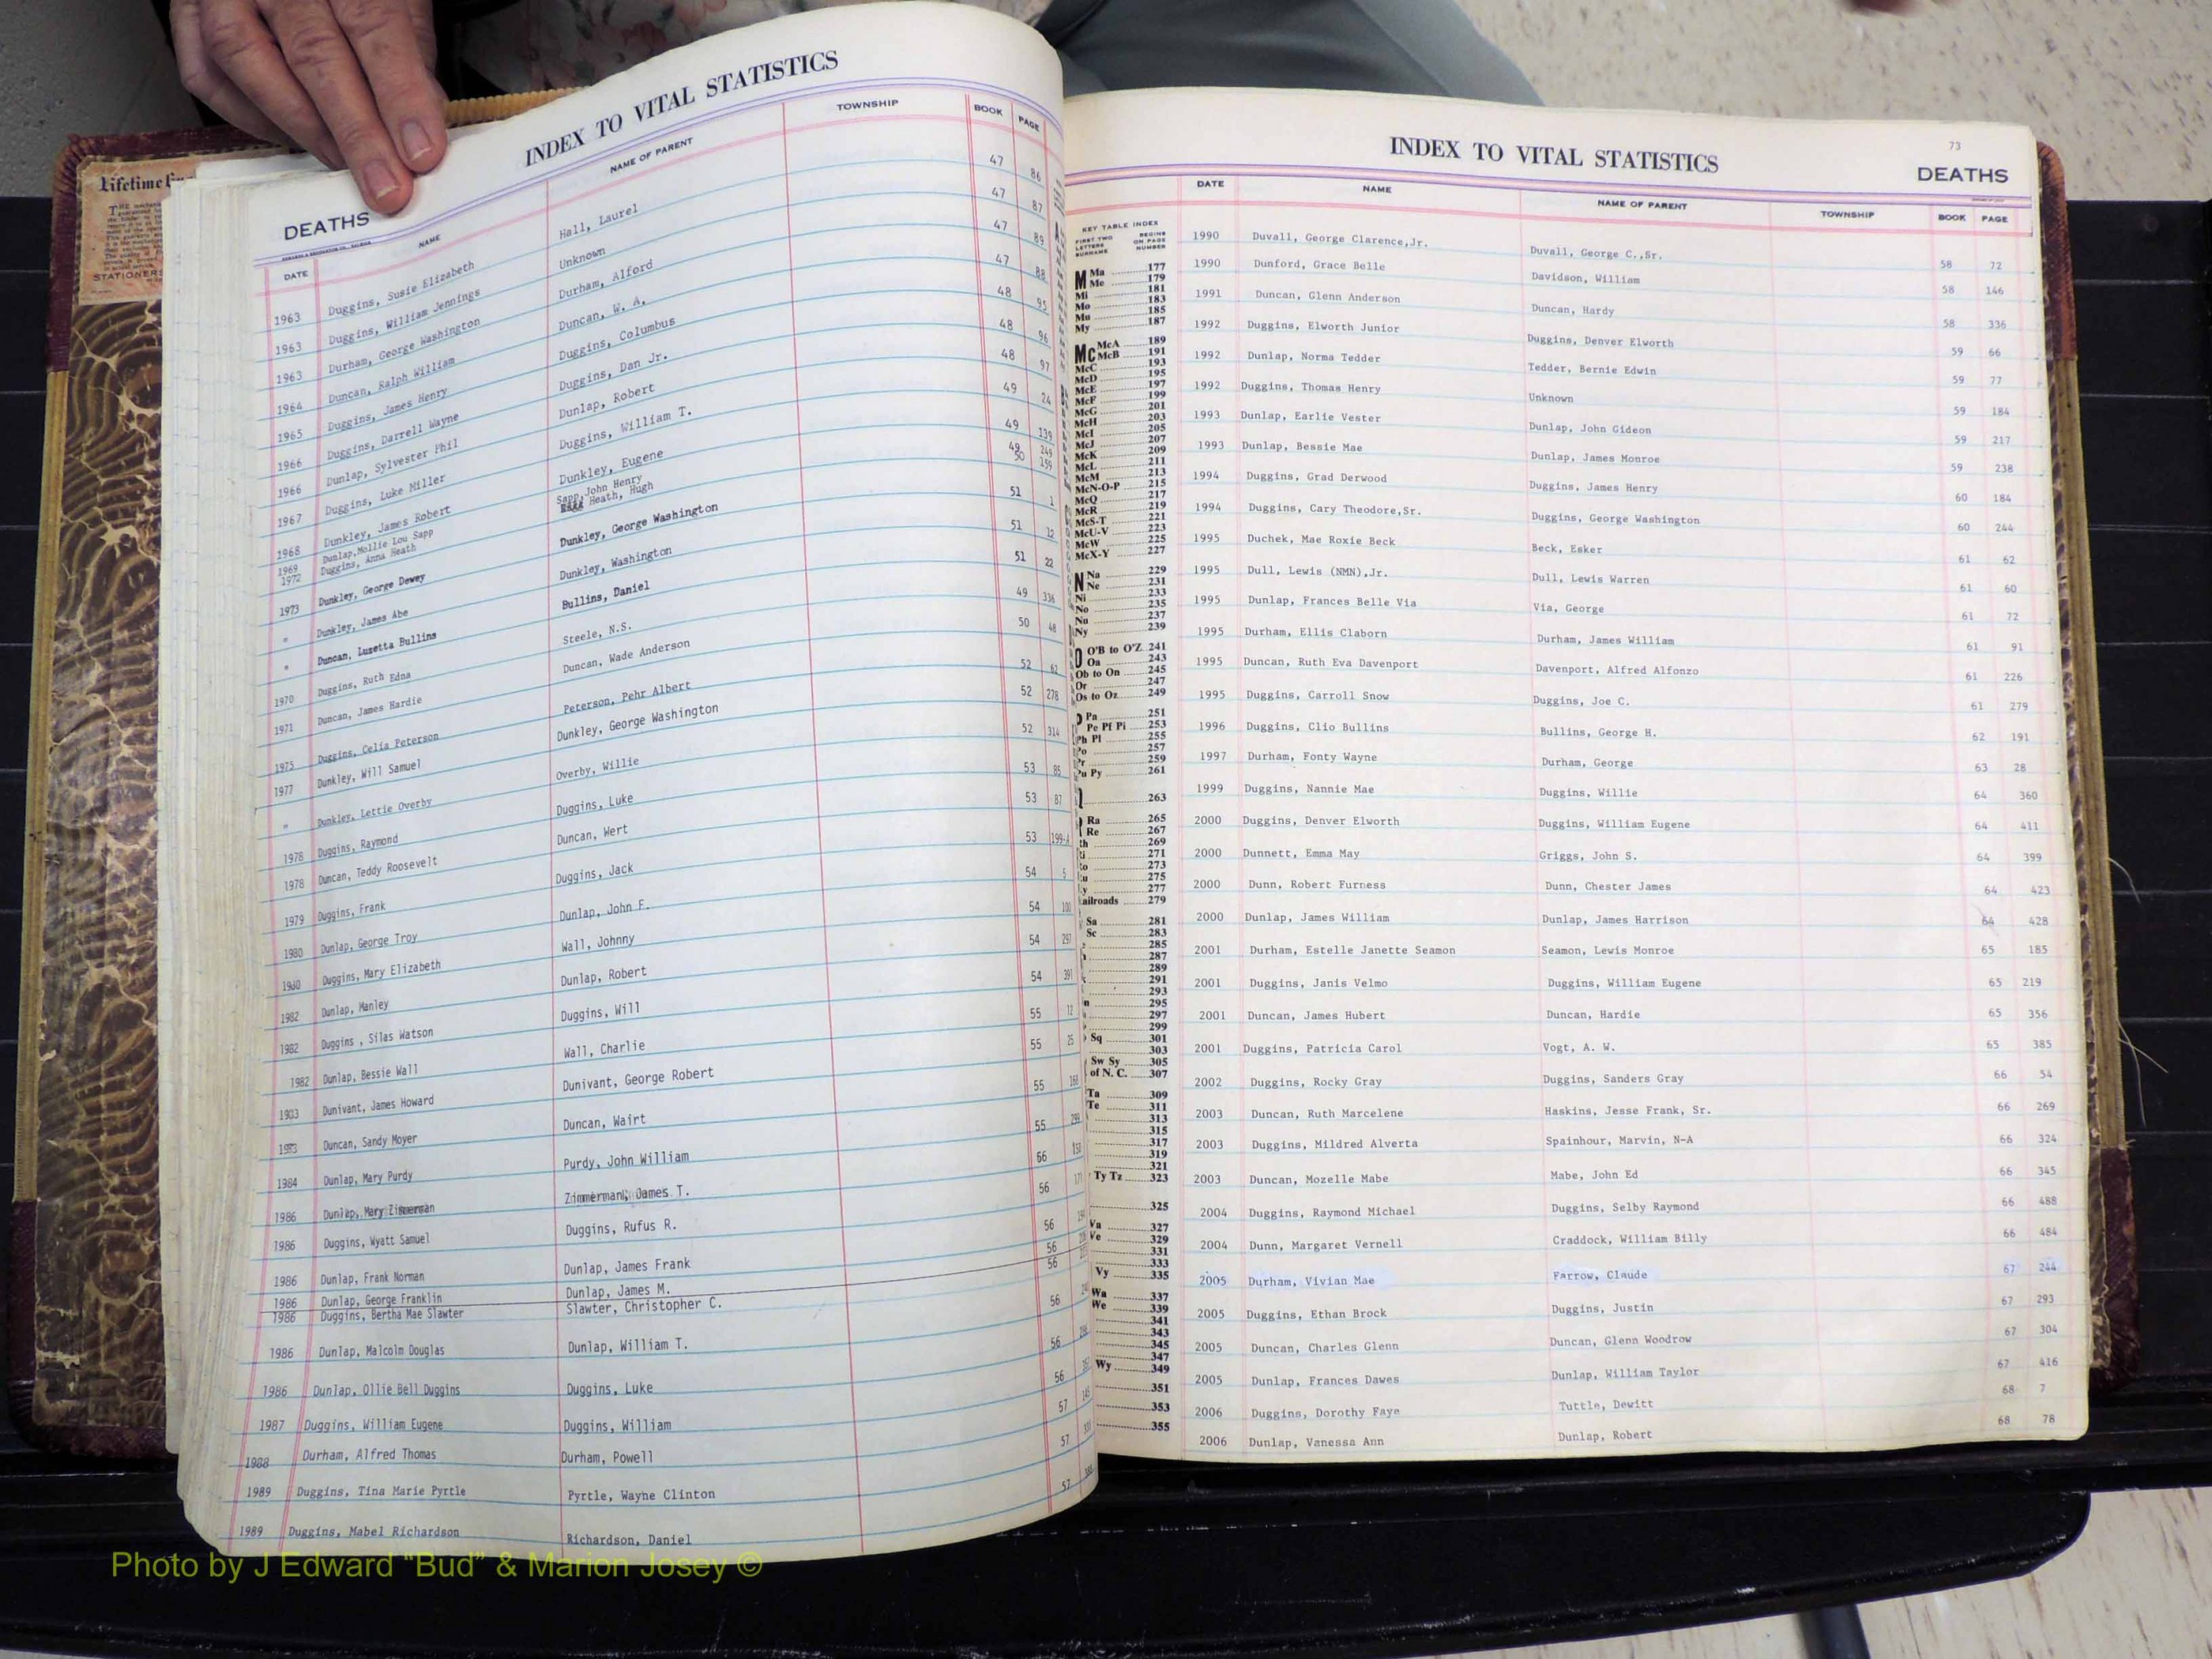 Lifetime
THE
STATIONERS
INDEX TO VITAL STATISTICS
DEATHS
DATE NAME NAME OF PARENT TOWNSHIP BOOK PAGE
1963 Duggins, Susie Elizabeth Hall, Laurel 47 86
1963 Duggins, William Jennings Unknown 47 87
1963 Durham, George Washington Durham, Alford 47 89
1964 Duncan, Ralph William Duncan, W. A. 47 88
1965 Duggins, James Henry Duggins, Columbus 48 95
1966 Duggins, Darrell Wayne Duggins, Dan Jr. 48 96
1966 Dunlap, Sylvester Phil Dunlap, Robert 48 97
1967 Duggins, Luke Miller Duggins, William T. 49 24
1968 Dunkley, James Robert Dunkley, Eugene 49 139
1969 Dunlap,Mollie Lou Sapp Sapp,John Henry 49 249
1972 Duggins, Anna Heath Heath, Hugh 50 159
1973 Dunkley, George Dewey Dunkley, George Washington 51 1
" Dunkley, James Abe Dunkley, Washington 51 12
" Duncan, Luzetta Bullins Bullins, Daniel 51 22
1970 Duggins, Ruth Edna Steele, N.S. 49 336
1971 Duncan, James Hardie Duncan, Wade Anderson 50 48
1975 Duggins, Celia Peterson Peterson, Pehr Albert 52 62
1977 Dunkley, Will Samuel Dunkley, George Washington 52 278
" Dunkley, Lettie Overby Overby, Willie 52 314
1978 Duggins, Raymond Duggins, Luke 53 85
1978 Duncan, Teddy Roosevelt Duncan, Wert 53 87
1979 Duggins, Frank Duggins, Jack 53 199-A
1980 Dunlap, George Troy Dunlap, John F. 54 5
1980 Duggins, Mary Elizabeth Wall, Johnny 54 100
1982 Dunlap, Manley Dunlap, Robert 54 297
1982 Duggins , Silas Watson Duggins, Will 54 391
1982 Dunlap, Bessie Wall Wall, Charlie 55 12
1983 Dunivant, James Howard Dunivant, George Robert 55 25
1983 Duncan, Sandy Moyer Duncan, Wairt 55
1984 Dunlap, Mary Purdy Purdy, John William 55
1986 Dunlap, Mary Zimmerman Zimmerman, James T. 56
1986 Duggins, Wyatt Samuel Duggins, Rufus R. 56
1986 Dunlap, Frank Norman Dunlap, James Frank 56
1986 Dunlap, George Franklin Dunlap, James M. 56
1986 Duggins, Bertha Mae Slawter Slawter, Christopher C. 56
1986 Dunlap, Malcolm Douglas Dunlap, William T. 56
1986 Dunlap, Ollie Bell Duggins Duggins, Luke 56
1987 Duggins, William Eugene Duggins, William 56
1988 Durham, Alfred Thomas Durham, Powell 57
1989 Duggins, Tina Marie Pyrtle Pyrtle, Wayne Clinton 57
1989 Duggins, Mabel Richardson Richardson, Daniel 57
KEY TABLE INDEX
FIRST TWO LETTERS SURNAME BEGINS ON PAGE NUMBER
M Ma 177
Me 179
Mi 181
Mo 183
Mu 185
My 187
Mc McA 189
McB 191
McC 193
McD 195
McE 197
McF 199
McG 201
McH 203
McI 205
McJ 207
McK 209
McL 211
McM 213
McN-O-P 215
McQ 217
McR 219
McS-T 221
McU-V 223
McW 225
McX-Y 227
N Na 229
Ne 231
Ni 233
No 235
Nu 237
Ny 239
O O'B to O'Z 241
Oa 243
Ob to On 245
Or 247
Os to Oz 249
Pa 251
Pe Pf Pi 253
Ph Pl 255
Po 257
Pr 259
Pu Py 261
263
Ra 265
Re 267
269
271
273
275
277
ailroads 279
Sa 281
Sc 283
285
287
289
291
293
295
297
299
Sq 301
303
Sw Sy 305
of N. C. 307
Ta 309
Te 311
313
315
317
319
321
Ty Tz 323
325
Va 327
Ve 329
331
333
Vy 335
Wa 337
We 339
341
343
345
347
Wy 349
351
353
355
73
INDEX TO VITAL STATISTICS
DEATHS
DATE NAME NAME OF PARENT TOWNSHIP BOOK PAGE
1990 Duvall, George Clarence,Jr. Duvall, George C.,Sr. 58 72
1990 Dunford, Grace Belle Davidson, William 58 146
1991 Duncan, Glenn Anderson Duncan, Hardy 58 336
1992 Duggins, Elworth Junior Duggins, Denver Elworth 59 66
1992 Dunlap, Norma Tedder Tedder, Bernie Edwin 59 77
1992 Duggins, Thomas Henry Unknown 59 184
1993 Dunlap, Earlie Vester Dunlap, John Gideon 59 217
1993 Dunlap, Bessie Mae Dunlap, James Monroe 59 238
1994 Duggins, Grad Derwood Duggins, James Henry 60 184
1994 Duggins, Cary Theodore,Sr. Duggins, George Washington 60 244
1995 Duchek, Mae Roxie Beck Beck, Esker 61 62
1995 Dull, Lewis (NMN),Jr. Dull, Lewis Warren 61 60
1995 Dunlap, Frances Belle Via Via, George 61 72
1995 Durham, Ellis Claborn Durham, James William 61 91
1995 Duncan, Ruth Eva Davenport Davenport, Alfred Alfonzo 61 226
1995 Duggins, Carroll Snow Duggins, Joe C. 61 279
1996 Duggins, Clio Bullins Bullins, George H. 62 191
1997 Durham, Fonty Wayne Durham, George 63 28
1999 Duggins, Nannie Mae Duggins, Willie 64 360
2000 Duggins, Denver Elworth Duggins, William Eugene 64 411
2000 Dunnett, Emma May Griggs, John S. 64 399
2000 Dunn, Robert Furness Dunn, Chester James 64 423
2000 Dunlap, James William Dunlap, James Harrison 64 428
2001 Durham, Estelle Janette Seamon Seamon, Lewis Monroe 65 185
2001 Duggins, Janis Velmo Duggins, William Eugene 65 219
2001 Duncan, James Hubert Duncan, Hardie 65 356
2001 Duggins, Patricia Carol Vogt, A. W. 65 385
2002 Duggins, Rocky Gray Duggins, Sanders Gray 66 54
2003 Duncan, Ruth Marcelene Haskins, Jesse Frank, Sr. 66 269
2003 Duggins, Mildred Alverta Spainhour, Marvin, N-A 66 324
2003 Duncan, Mozelle Mabe Mabe, John Ed 66 345
2004 Duggins, Raymond Michael Duggins, Selby Raymond 66 488
2004 Dunn, Margaret Vernell Craddock, William Billy 66 484
2005 Durham, Vivian Mae Farrow, Claude 67 244
2005 Duggins, Ethan Brock Duggins, Justin 67 293
2005 Duncan, Charles Glenn Duncan, Glenn Woodrow 67 304
2005 Dunlap, Frances Dawes Dunlap, William Taylor 67 416
2006 Duggins, Dorothy Faye Tuttle, Dewitt 68 7
2006 Dunlap, Vanessa Ann Dunlap, Robert 68 78
Photo by J Edward "Bud" & Marion Josey ©